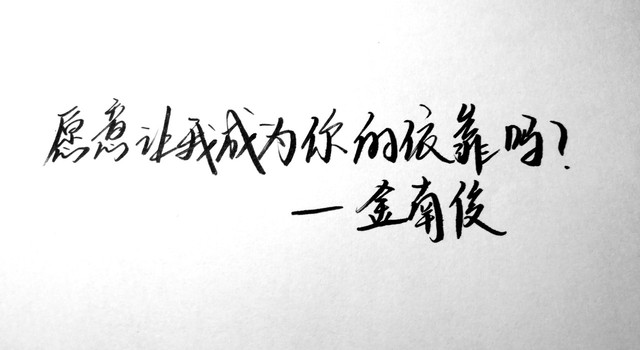 愿意让我成为你的依靠吗?
—金南俊